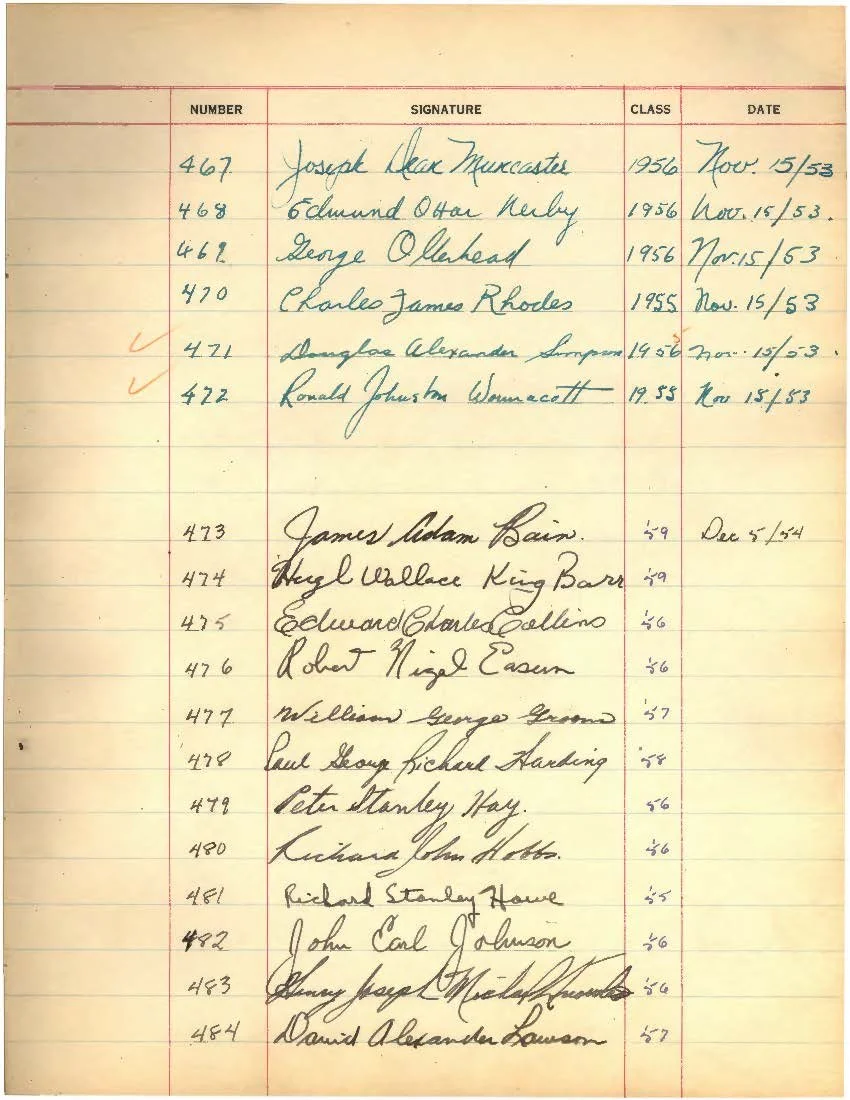 NUMBER SIGNATURE CLASS DATE
467 Joseph Dean Muncaster 1956 Nov. 15/53
468 Edmund Ottar Nerby 1956 Nov. 15/53.
469 George Ollerhead 1956 Nov. 15/53
470 Charles James Rhodes 1955 Nov. 15/53
471 Douglas Alexander Simpson 1956 Nov. 15/53.
472 Ronald Johnston Wonnacott 19.55 Nov 15/53
473 James Adam Bain. '59 Dec 5/54
474 Hugh Wallace King Barr '59
475 Edward Charles Collins '56
476 Robert Nigel Eason '56
477 William George Groom '57
478 Paul George Richard Harding '58
479 Peter Stanley Hay. 56
480 Richard John Hobbs. '56
481 Richard Stanley Howe '55
482 John Earl Johnson '56
483 Henry Joseph Michael '56
484 David Alexander Lawson '57